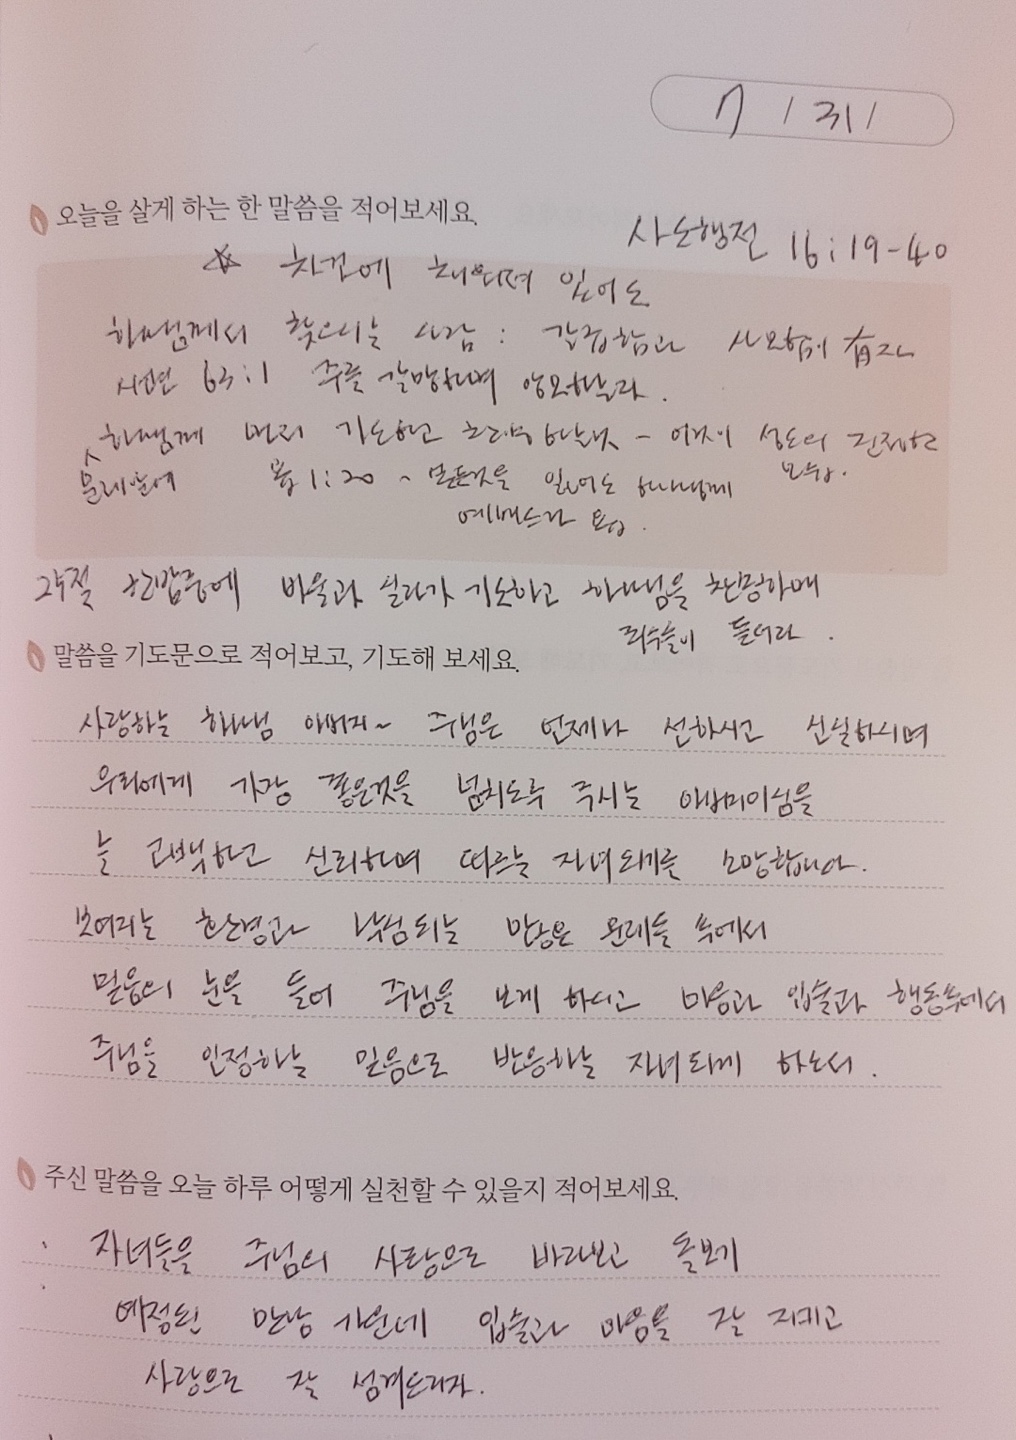 7 / 31
오늘을 살게 하는 한 말씀을 적어보세요.
사도행전 16:19-40
☆ 차꼬에 채워져 있어도
하나님께서 찾으시는 사람 : 갈급함과 사모함이 有자
시편 63:1 주를 갈망하며 앙모하나이다.
하나님께 먼저 기도하고 하는것 - 성도의 진정한 모습.
문제앞에 욥 1:20 ~ 모든것을 잃어도 하나님께
예배드린 욥.
25절 한밤중에 바울과 실라가 기도하고 하나님을 찬송하매
죄수들이 듣더라.
말씀을 기도문으로 적어보고, 기도해 보세요.
사랑하는 하나님 아버지~ 주님은 언제나 선하시고 신실하시며
우리에게 가장 좋은것을 넘치도록 주시는 아버지이심을
늘 고백하고 신뢰하며 따르는 자녀되기를 소망합니다.
보여지는 환경과 낙심되는 많은 문제들 속에서
믿음의 눈을 들어 주님을 보게 하시고 마음과 입술과 행동속에서
주님을 인정하는 믿음으로 반응하는 자녀되게 하소서.
주신 말씀을 오늘 하루 어떻게 실천할 수 있을지 적어보세요.
자녀들을 주님의 사랑으로 바라보고 돌보기
예정된 만남 가운데 입술과 마음을 잘 지키고
사랑으로 잘 섬겨드리자.